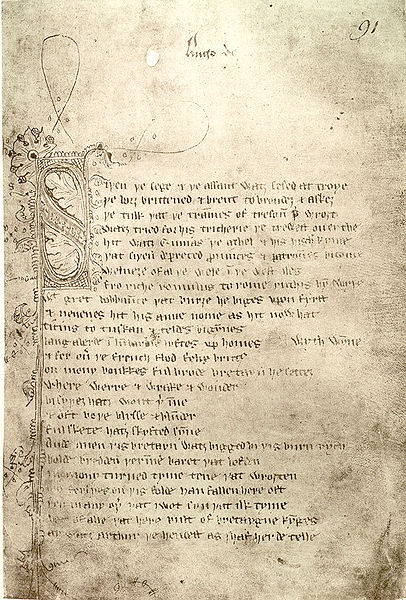 91
Siþen þe sege & þe assaut watz sesed at troye
þe borȝ brittened & brent to brondez & askez
þe tulk þat þe trammes of tresoun þer wroȝt
watz tried for his tricherie þe trewest on erthe
hit watz ennias þe athel & his highe kynde
þat siþen depreced prouinces & patrounes bicome
welneȝe of al þe wele in þe west iles
fro riche romulus to rome ricchis hym swyþe
gret bobbaunce þat burȝe he biges vpon fyrst
& neuenes hit his aune nome as hit now hat
ticius to tuskan & teldes bigynnes
langaberde in lumbardie lyftes vp homes wyth wynne
& fer ouer þe french flod felix brutus
on mony bonkkes ful brode bretayn he settez
where werre & wrake & wonder
bi syþez hatz wont þer inne
& oft boþe blysse & blunder
ful skete hatz skyfted synne
Ande quen þis bretayn watz bigged bi þis burn rych
bolde bredden þer inne baret þat lofden
in mony turned tyme tene þat wroȝten
mo ferlyes on þis folde han fallen here oft
þen in any oþer þat I wot syn þat ilk tyme
bot of alle þat here bult of bretaygne kynges
ay watz arthur þe hendest as I haf herde telle